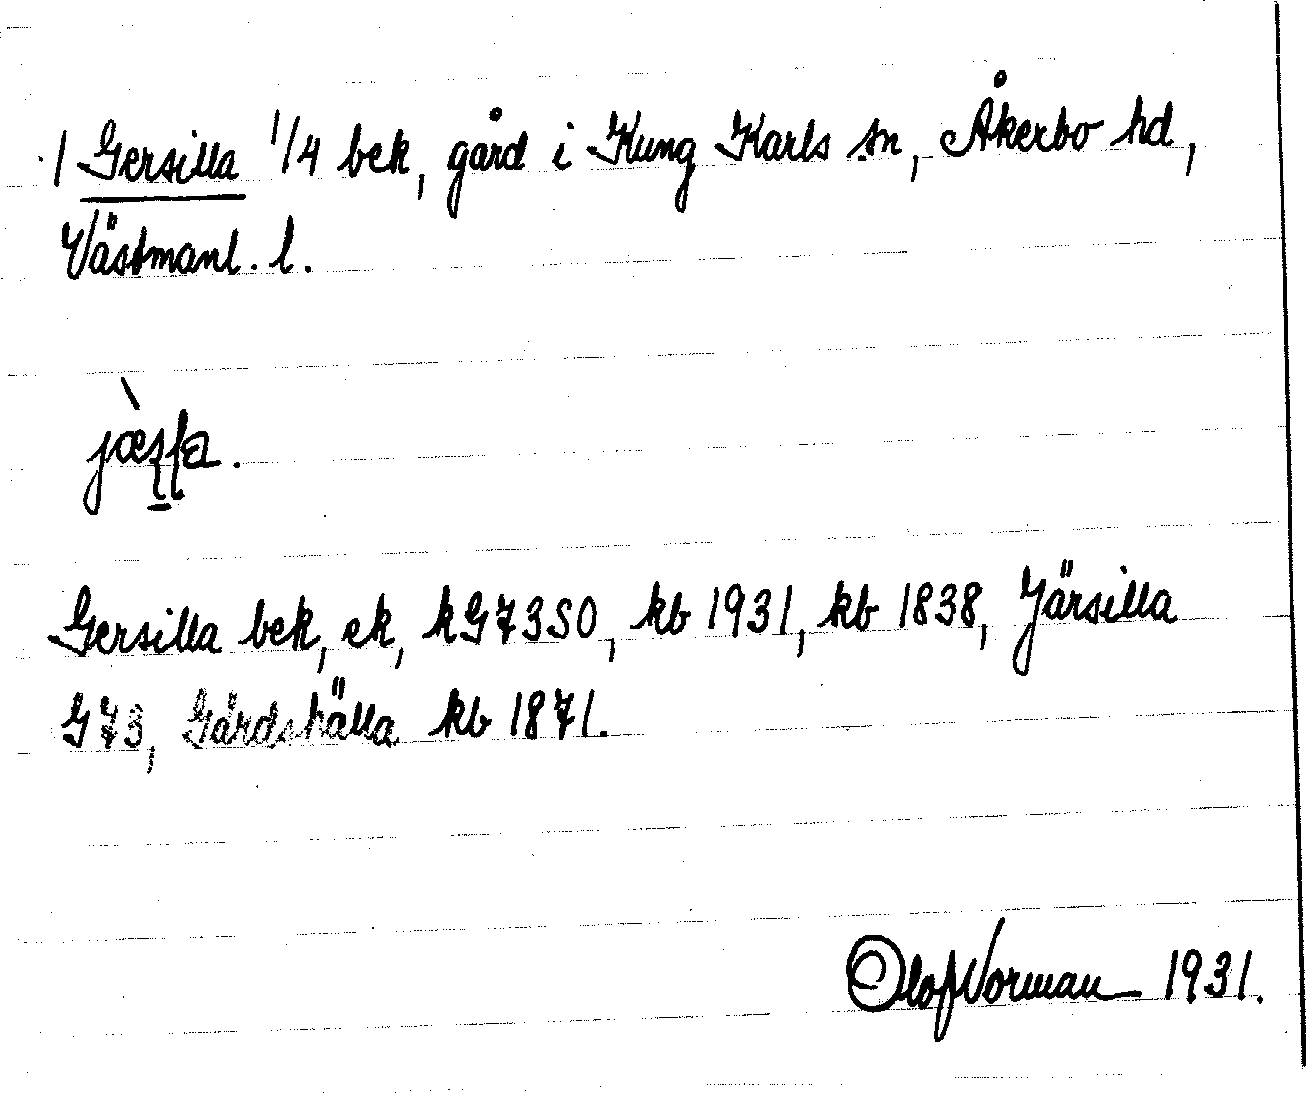 1 Gersilla 1/4 bek, gård i Kung Karls sn, Åkerbo hd,
Västmanl. l.
Gersilla bek, ek, kG73SO, kb 1931, kb 1838, Järsilla
G73, Gårdshälla kb 1871.
Olof Norman 1931.